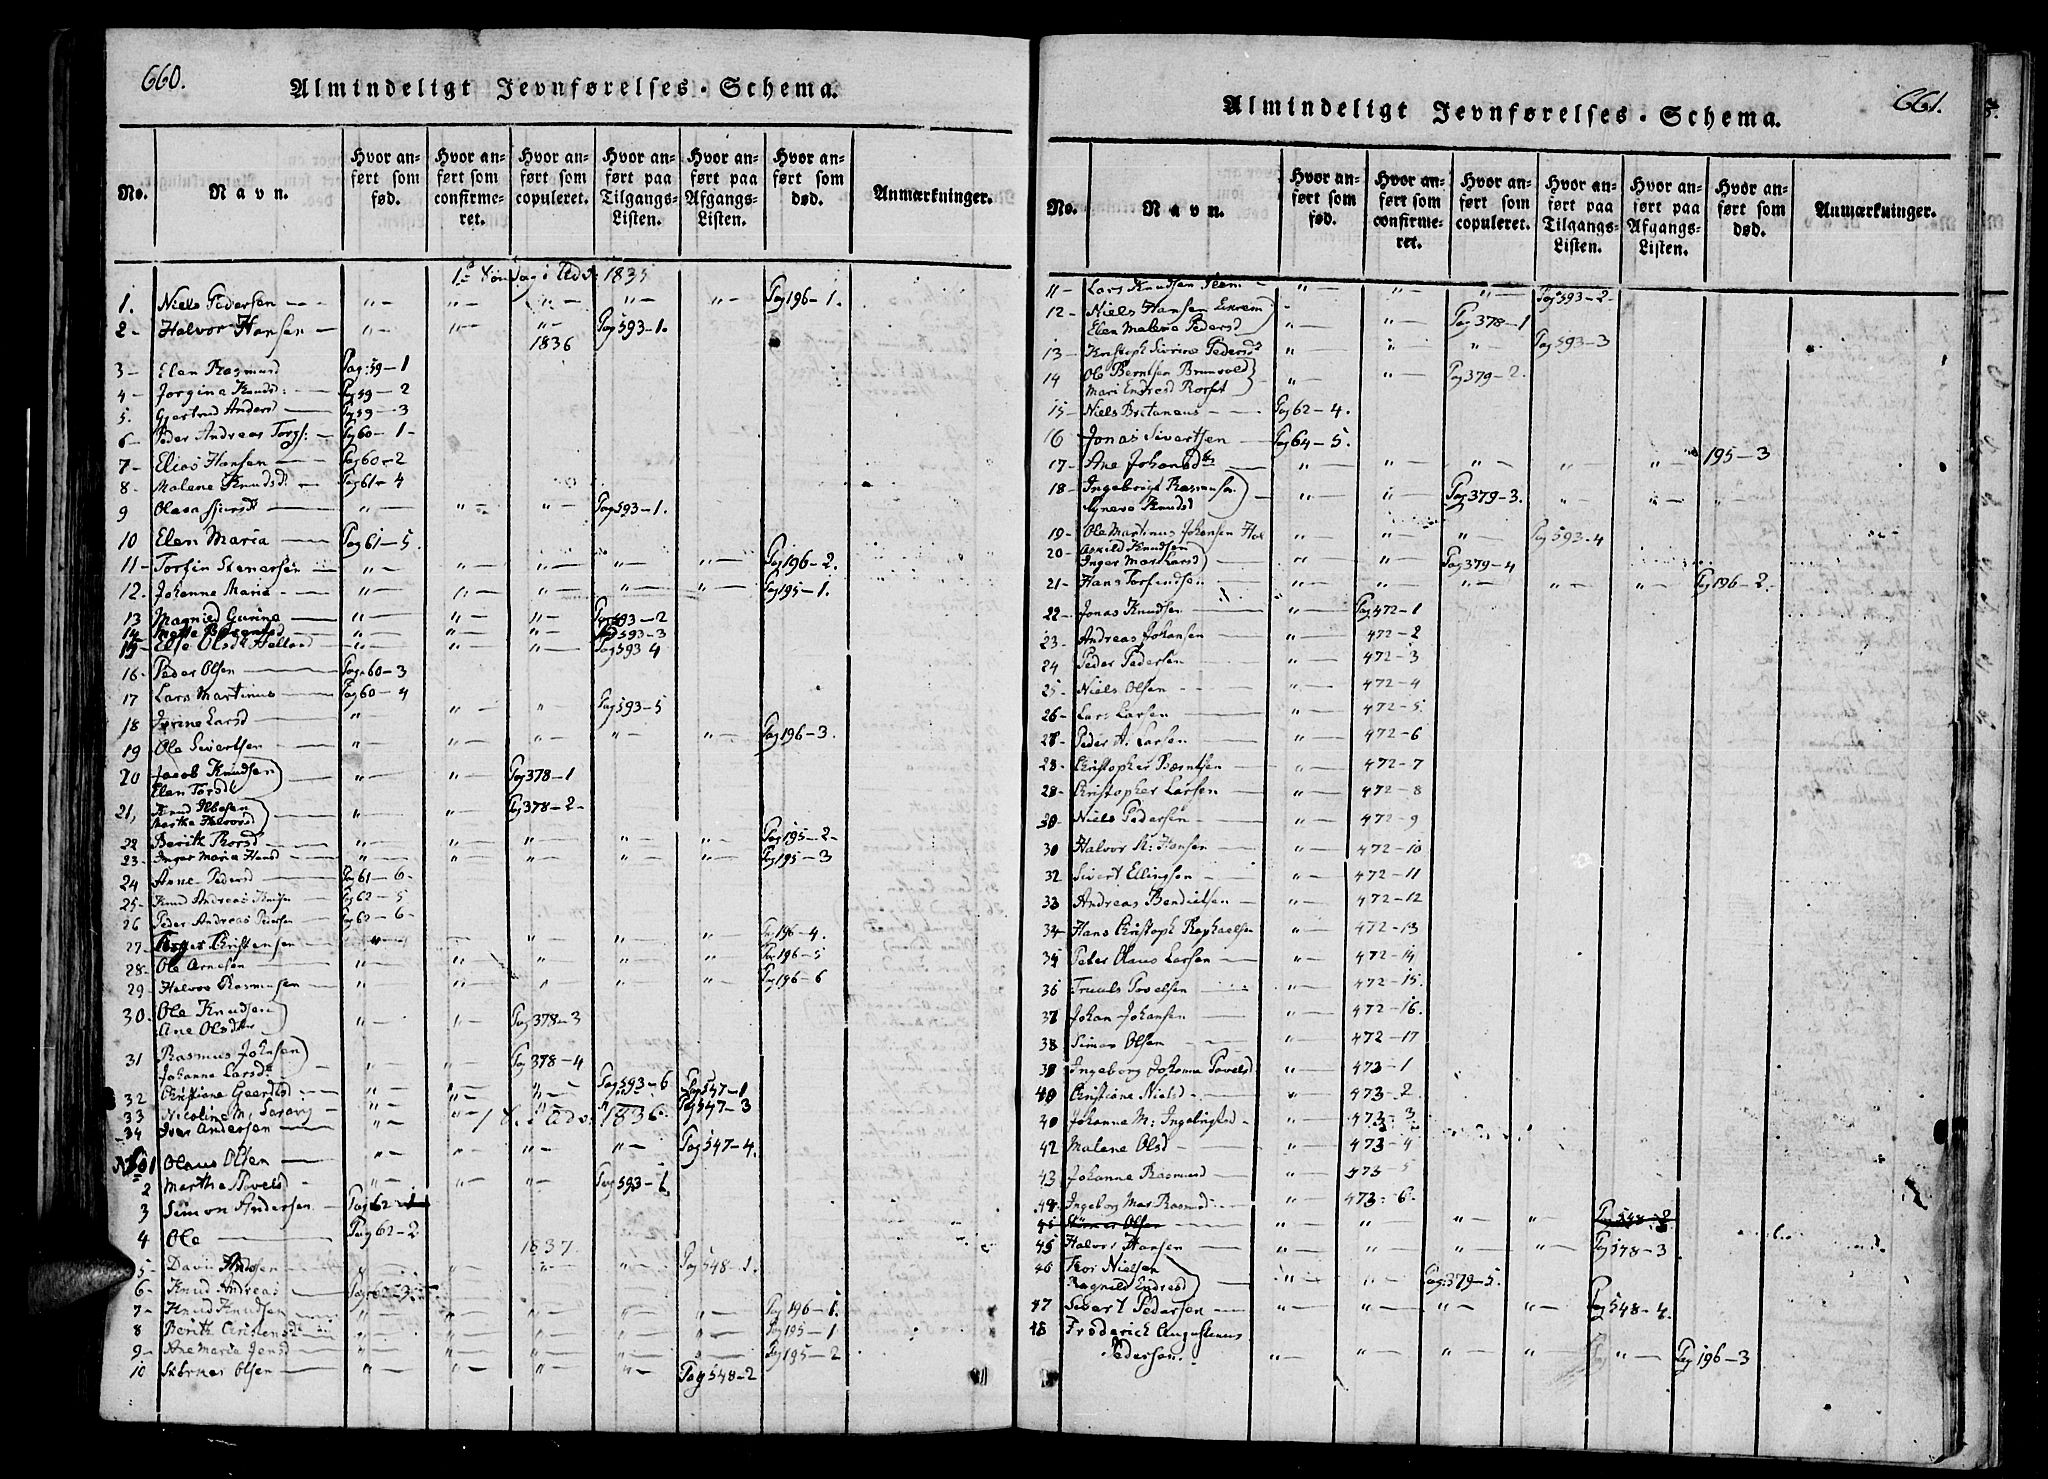 660.
Almindeligt Jevnførelses-Schema.
No. Navn. Hvor anført som fød. Hvor anført som confirmeret. Hvor anført som copuleret. Hvor anført paa Tilgangs-Listen. Hvor anført paa Afgangs-Listen. Hvor anført som død. Anmærkninger.
1835
1. Niels Pedersen Pag 196-1.
2- Halvor Hansen Pag 593-1.
1836
3- Elen Rasmusd Pag: 59-1
4- Jorgine Knudsd: Pag 59-2
5. Gjertrud Andersd Pag 59-3
6- Peder Andreas Torgs: Pag 60-1-
7- Elias Hansen Pag 60-2
8- Malene Knudsd Pag 61-4
9 Olava Pag 593-1.
10 Elen Maria Pag 61-5.
11- Torfin Stenersen Pag 196-2.
12. Johanne Maria Pag 195-1.
13 Magnild Gurine Pag 593-2
14 Mette Berentsd Pag 593-3
15- Else Olsd Helland Pag 593 4
16- Peder Olsen Pag 60-3
17 Lars Martinus Pag 60-4
18 Larsd Pag 593-5
19 Ole Sivertsen Pag 196-3.
20 Jacob Knudsen
Elen Torsd Pag 378-1
21, Knud
Marthe Halvorsd Pag 378-2-
22 Berith Thorsd Pag 195-2-
23- Inger Maria Pag 195-3
24 Anne Pedersd Pag 61-6-
25- Knud Andreas Pag 62-5
26 Peder Andreas Pedersen Pag 62-6-
27- Christensen Pag 196-4.
28- Ole Arnesen Pag 196-5
29- Halvor Rasmussen Pag 196-6
30. Ole Knudsen
Ane Olsdtr Pag 378-3
31 Rasmus Johnsen
Johanne Larsd Pag 378-4
32 Christiane Pag 593-6 Pag 547-1
33 Nicoline M: Pag 547-3
34 Iver Andersen 1836.
1 Olaus Olsen Pag 547-4.
2 Marthe Povelsd Pag 593-1
3 Simon Andersen Pag 62-1
4 Ole Pag 62-2
1837.
5- David Pag 548-1.
6- Knud Andreas Pag 62-3
7- Knud Knudsen Pag 196-1.
8 Berith Pag 195-1
9- Ane Maria Jensd Pag 195-2
10 Størker Olsen Pag 548-2
661.
Almindeligt Jevnførelses-Schema.
No. Navn. Hvor anført som fød. Hvor anført som confirmeret. Hvor anført som copuleret. Hvor anført paa Tilgangs-Listen. Hvor anført paa Afgangs-Listen. Hvor anført som død. Anmærkninger.
11- Lars Knudsen Pag 593-2-
12- Niels Hansen Ekrem
Elen Malene Pedersd Pag 378-1
13- Sivrine Pedersd Pag 593-3
14 Ole Berntsen Brunvold
Mari Endresd Rorset Pag 379-2.
15- Niels Britanus Pag 62-4.
16 Jonas Sivertsen Pag 64-5.
17- Ane Johansd 195-3
18- Ingebrigt Rasmussen
Synneve Knudsd Pag 379-3.
19- Ole Martinus Johansen Pag 593-4
20- Askild Knudsen
Inger Mar: Larsd Pag 379-4
21- Hans Torfindsen Pag 196-2.
22- Jonas Knudsen Pag 472-1
23- Andreas Johansen 472-2
24 Peder Pedersen 472-3
25- Niels Olsen 472-4
26- Lars Larsen 472-5
28- Peder A: Larsen 472-6
28- Christopher Berntsen 472-7
29- Christopher Larsen 472-8
30- Niels Pedersen 472-9
30 Halvor H: Hansen 472-10
32 Sivert Ellingsen 472-11
33 Andreas Bendictsen 472-12
34- Hans Christoph Raphaelsen 472-13
35 Peter Olaus Larsen 472-14
36 Truuls Povelsen 472-15.
37 Johan Johansen 472-16.
38 Simon Olsen 472-17
39 Ingeborg Johanna Povelsd 473-1
40 Christiane Nielsd 473-2
40 Johanne M: 473-3
42 Malene Olsd 473-4
43 Johanne Rasmusd 473-5
44. Ingeborg Mar: Rasmusd: 473-6
45 Størker Olsen Pag 548-2
45 Halvor Hansen Pag 548-3
46 Thor Nielsen
Ragnild Endresd Pag: 379-5.
47 Sivert Pedersen Pag 548-4.
48 Frederich Augustinus
Pedersen. Pag 196-3